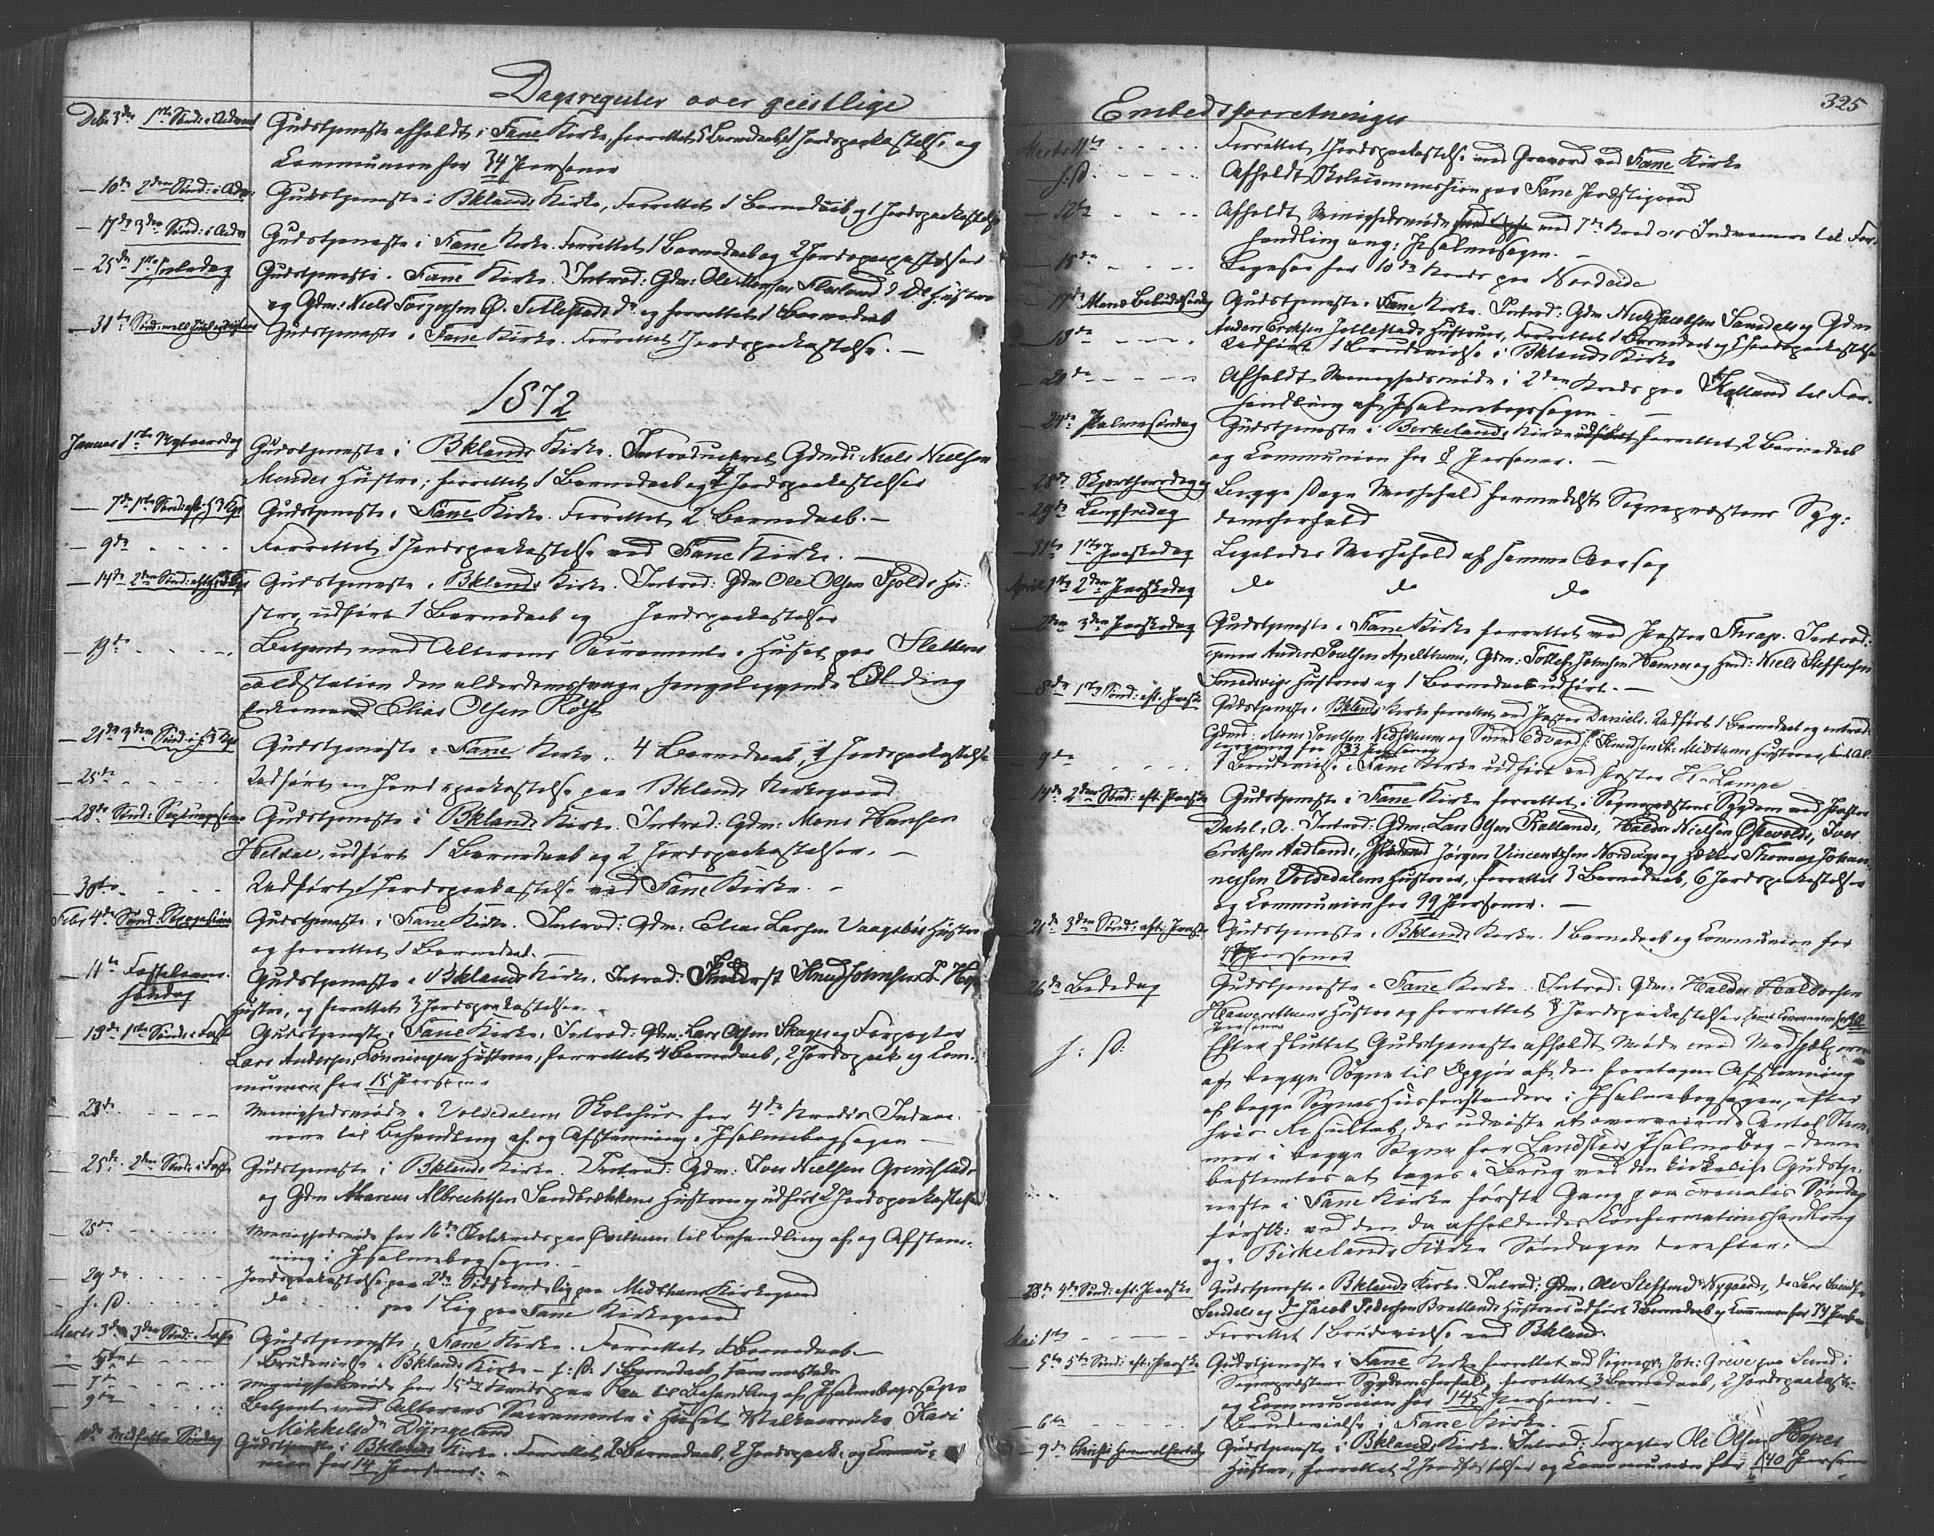 Dagsregister over geistlige
Decbr 3die 1ste Sønd: i Advent Gudstjeneste afholdt i Fane Kirke, forrettet 5 Barnedaab, 1 Jordspaakastelse og
Communion for 34 Personer
— 10de 2den Sønd: i Adv. Gudstjeneste i Bklands Kirke, Forrettet 1 Barnedaab og 1 Jordspaakastelse
— 17de 3die Sønd: i Adv. Gudstjeneste i Fane Kirke. Forrettet 1 Barnedaab og 2 Jordspaakastelser
— 25de 1ste Juledag Gudstjeneste i Fane Kirke. Introd: Gdm: Ole Monsen Hustru
og Gdm: Niels Jørgensen Ø. Titlestads do og forrettet 1 Barnedaab
— 31te Sønd: mell: Juul og Nytaar Gudstjeneste i Fane Kirke. Forrettet 1 Jordspaakastelse. —
1872
Januar 1ste Nytaarsdag Gudstjeneste i Bklands Kirke. Introduceret Gdmd: Niels Nielsen
Hustru; forrettet 1 Barnedaab og Jordspaakastelser
— 7de 1ste Sønd: eft: H 3 Kgr Gudstjeneste i Fane Kirke. Forrettet 2 Barnedaab. —
— 9de Forrettet 1 Jordspaakastelse ved Fane Kirke. —
— 14de 2den Sønd: eft: H 3 Kgr Gudstjeneste i Bklands Kirke. Introd: Gdm Ole Olsen Hu-
stru, udført 1 Barnedaab og Jordspaakastelser
— 19de Betjent med Alterens Sacramente i Huset paa
den alderdomssvage, sengeliggende Olding
Enkemand Elias Olsen
— 21de 3die Sønd: e: H 3 Kgr Gudstjeneste i Fane Kirke. 4 Barnedaab, 1 Jordspaakastelse
— 25de Udført en Jordspaakastelse paa Bklands Kirkegaard
— 28de Sønd: Septuagesima Gudstjeneste i Bklands Kirke. Introd: Gdm: Mons Hansen
Heldal, udført 1 Barnedaab og 2 Jordspaakastelser. —
— 30te Udført 1 Jordspaakastelse ved Fane Kirke. —
Febr 4de Sønd: Gudstjeneste i Fane Kirke. Introd: Gdm: Elias Larsen Vaagsbøs Hustru
og forrettet 1 Barnedaab.
— 11te Fastelavns- Gudstjeneste i Bklands Kirke. Introd: Knud Johnsen
søndag Hustru, og forrettet 3 Jordspaakastelser.
— 18de 1ste Sønd: i Faste Gudstjeneste i Fane Kirke, Introd: Gdm: Lars Olsen Skages og Forpagter
Lars Andersen Hustruer, forrettet 4 Barnedaab, 2 Jordspaak. og Com-
munion for 15 Personer
— 23de Menighedsmøde i Skolehus for 4de Kreds's Indvaa-
nere til Behandling af og Afstemning i Psalmebogsagen —
— 25de 2den Sønd: i Faste Gudstjeneste i Bklands Kirke. Introd: Gdm: Iver Nielsen Grimstads
og Gdm Marcus Albrechtsen Sandbrækkens Hustruer og udført 2 Jordspaakastelser
— 28de Menighedsmøde for 16de Skolekreds paa til Behandling af og Afstem-
ning i Psalmebogsagen. —
— 29de Jordspaakastelse paa 2de Lig paa Midthuns Kirkegaard
s: D. do paa 1 Lig paa Fane Kirkegaard
Marts 3die 3die Sønd: i Faste Gudstjeneste i Fane Kirke. Forrettet Barnedaab —
— 5te 1 Brudevielse i Bklands Kirke — s: D: 1 Barnedaab sammesteds
— 7de Menighedsmøde for 15de Kreds paa til Behandling af Psalmebogssagen
— 9de Betjent med Alterens Sacramente i Huset Kari
Mikkelsdr Dyngeland
— 10de Midfaste Søndag Gudstjeneste i Bklands Kirke. Forrettet 2 Barnedaab, 2 Jordspaak. og Commu-
nion for 14 Personer. —
Embedsforretninger 325
Marts 11te Forrettet 1 Jordspaakastelse med Gravord ved Fane Kirke
s: D. Afholdt Skolecommission paa Fane Præstegaard
— 12te Afholdt Menighedsmøde med 7de Kreds's Indvaanere til For-
handling ang: Psalmesagen. —
— 15de for 10de Kreds paa Nordeide
— 17de Mariæ Bebudelsesdag Gudstjeneste i Fane Kirke. Introd: Gdm Niels Jacobsen Samdals og Gdm
Anders Ericksen Titlestads Hustruer, forrettet 1 Barnedaab og Jordspaakastelse
— 19de Udført 1 Brudevielse i Bklands Kirke
— 20de Afholdt Menighedsmøde i 2den Kreds paa Kalland til For-
handling af Psalmebogssagen. —
— 24de Palmesøndag Gudstjeneste i Birkelands Kirke forrettet 2 Barnedaab
og Communion for 8 Personer. —
— 28de Skjærthorsdag og Begge Dage Messefald formedelst Sognepræstens Syg-
— 29de Langfredag domsforfald
— 31te 1ste Paaskedag Ligeledes Messefald af samme Aarsag
April 1ste 2den Paaskedag do do do
— 2den 3die Paaskedag Gudstjeneste i Fane Kirke forrettet ved Pastor Thrap. Introd:
Anders Poulsen Apelthun, Gdm: Tollef Johnsen Hamre og Niels Steffensen
Hustruer og 1 Barnedaab udført. —
— 8de 1ste Sønd: eft: Paaske Gudstjeneste i Bklands Kirke forrettet ved Pastor Daniels. Udført 1 Barnedaab og introd:
Gdmd: Mons Poulsen og Edvard Knudsen Ø. Midthun Hustruer,
for 133 Personer
— 9de 1 Brudevielse i Fane Kirke udført ved Pastor Kl. Lampe
— 14de 2den Sønd: eft: Paaske Gudstjeneste i Fane Kirke forrettet i Sognepræstens Sygdom ved Pastor
Dahl, Os. Introd: Gdm: Lars Olsen Kallands, Haldor Nielsen Østevolds, Iver
Ericksen Aadlands, Jørgen Vincentsen Nordvigs og Thomas Johan-
nessen Hustruer, forrettet 3 Barnedaab, 6 Jordspaakastelser
og Communion for 99 Personer. —
— 21de 3die Sønd: eft: Paaske Gudstjeneste i Bklands Kirke. 1 Barnedaab og Communion for
Personer
— 26de Bededag Gudstjeneste i Fane Kirke. Introd: Gdm: Haldor Haldorsen
Hustru og forrettet 8 Jordspaakastelser samt Communion for
Personer
s: D: Efter sluttet Gudstjeneste afholdt Møde med Medhjælperne
af begge Sogne til Opgjør af den foretagne Afstemning
af begge Sognes Husforstandere i Psalmebogsagen, efter
hvis Resultat, der udviste et overveiende Antal Stem-
mer i begge Sogne for Landstads Psalmebog — denne
bestemtes at tages i Brug ved den kirkelige Gudstje-
neste i Fane Kirke første Gang paa Søndag
førstk: ved den da afholdendes Konfirmationshandling
og i Birkelands Kirke Søndagen derefter.
28de 4de Sønd: eft: Paaske Gudstjeneste i Bklands Kirke. Introd: Gdm: Ole Steffensens Nygaards, do Lars
Sandals og do Jacob Pedersen Bratlands Hustruer udført 3 Barnedaab og Communion for 74 Personer
Mai 1ste Forrettet 1 Brudevielse ved Bkland.
— 5te 5te Sønd: eft: Paaske Gudstjeneste i Fane Kirke forrettet ved Sognepr: Joh: Greve paa Sund i
Sognepræstens Sygdomsforfald, forrettet 3 Barnedaab, 2 Jordspaakast-
og Communion for 145 Personer. —
— 6te 1 Brudevielse i Fane Kirke.
— 9de Christi Himmelfartsdag Gudstjeneste i Bklands Kirke. Introd: Forpagter Ole Olsen Hopes
Hustru, forrettet 2 og Communion for 140 Personer